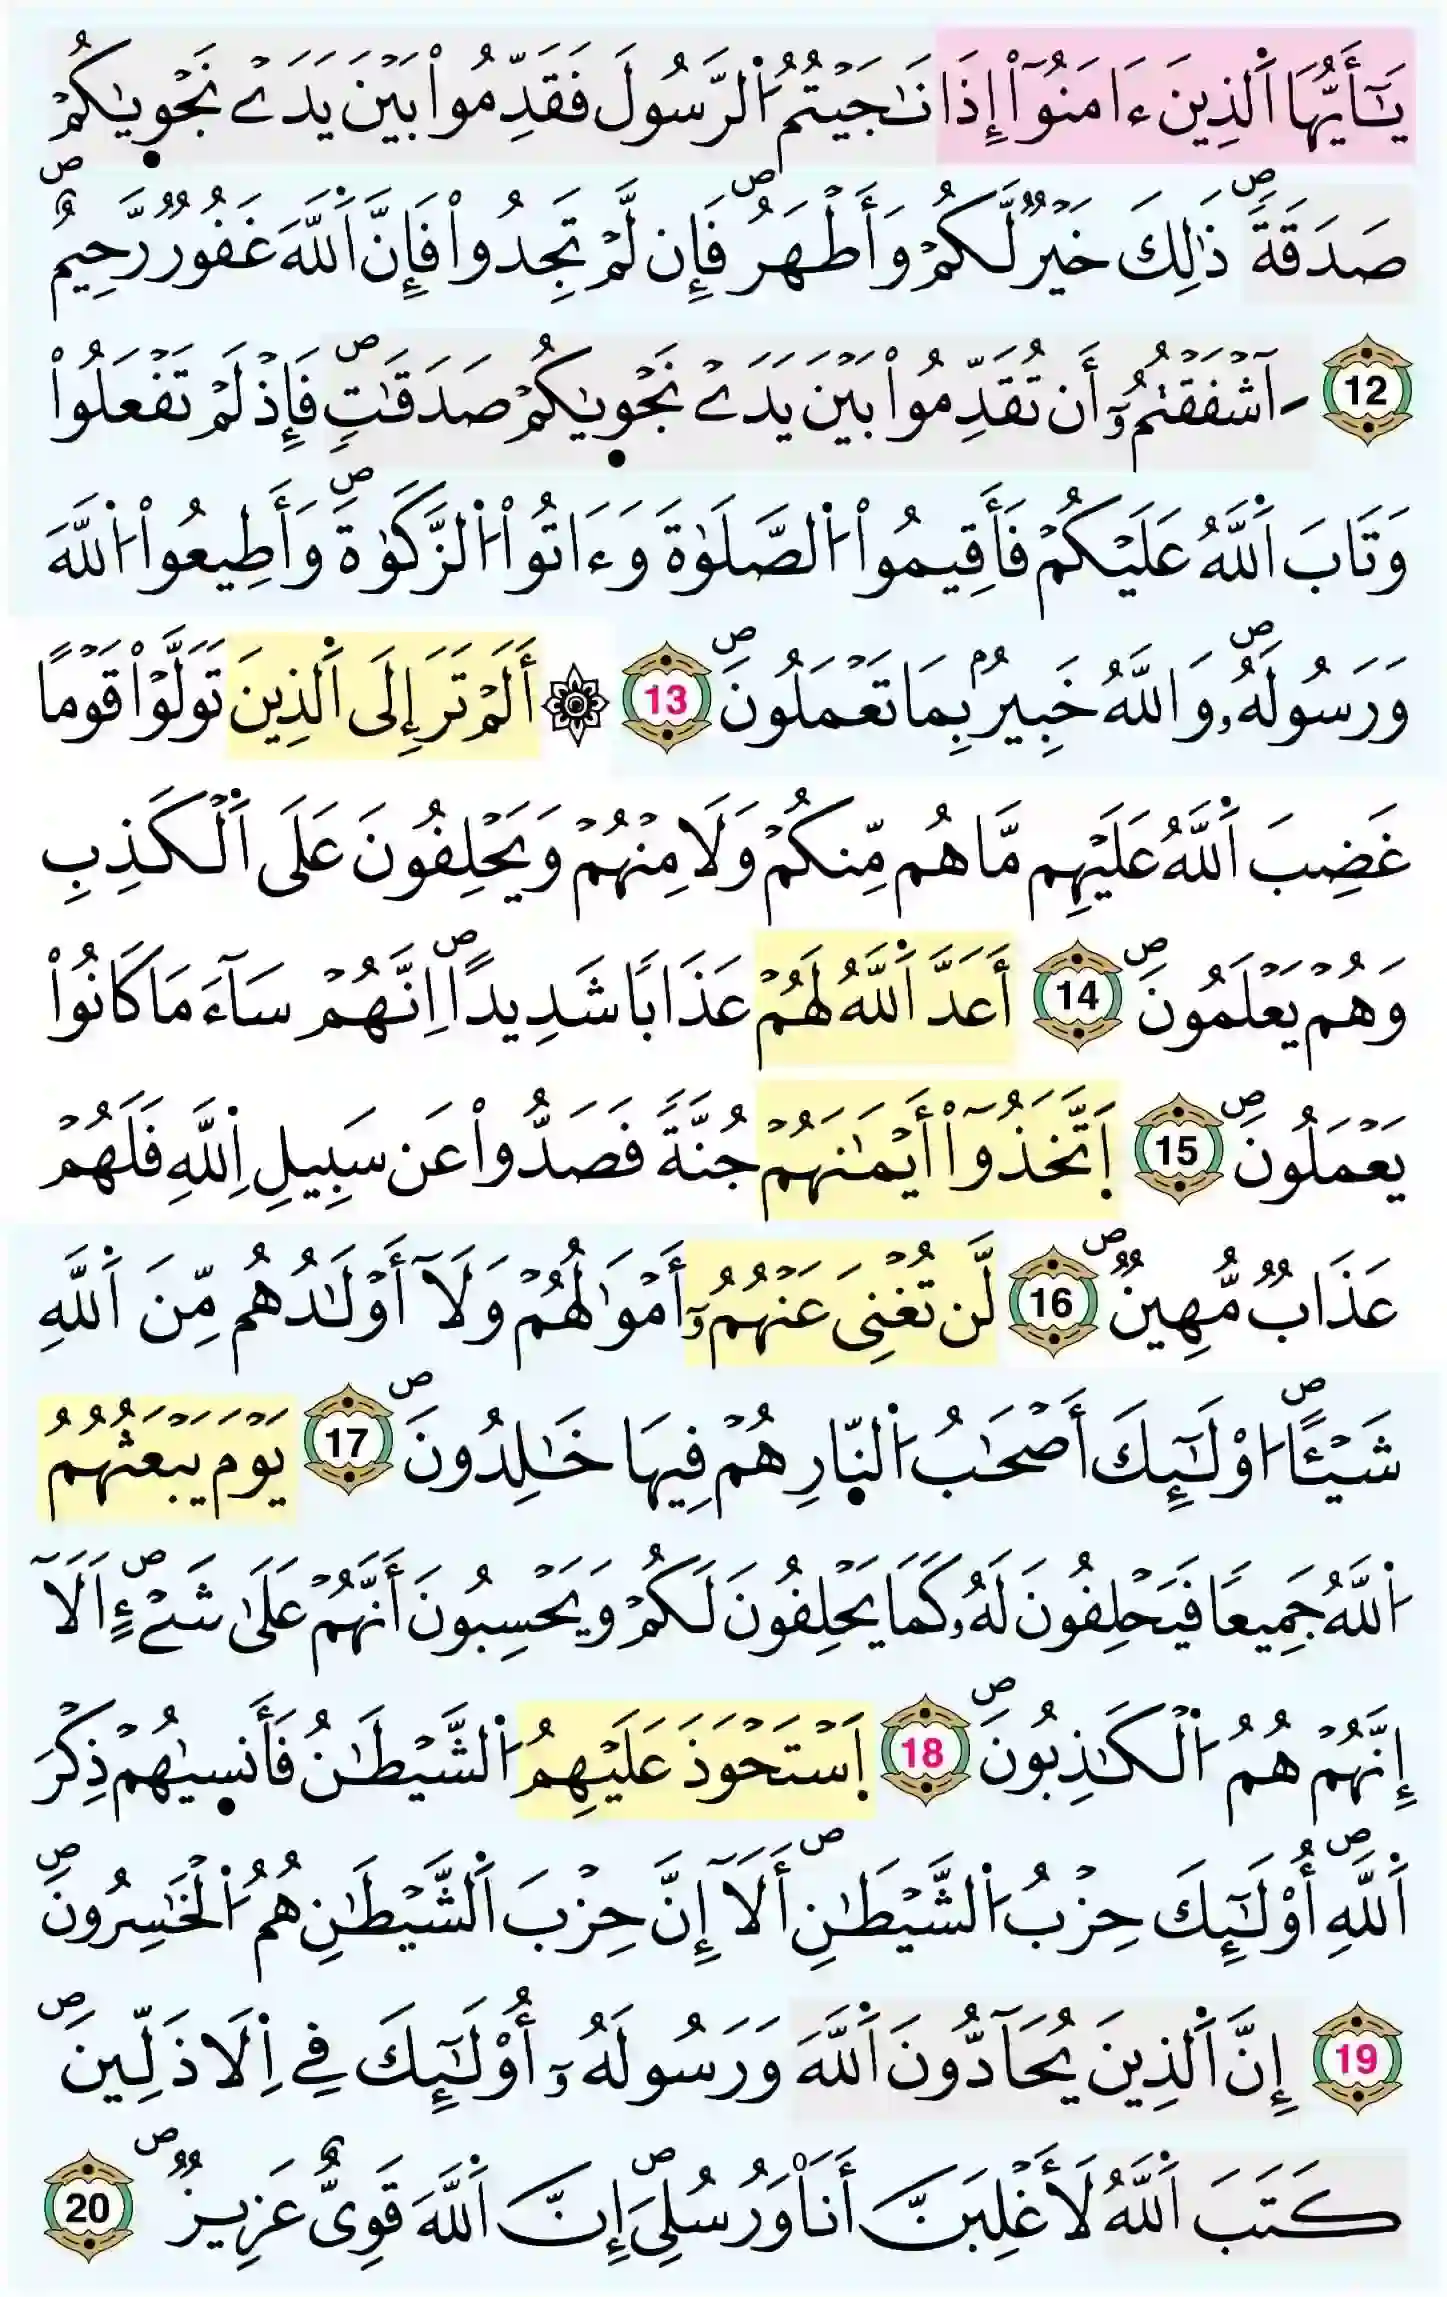 يَٰٓأَيُّهَا اَ۬لذِينَ ءَامَنُوٓاْ إِذَا نَٰجَيْتُمُ اُ۬لرَّسُولَ فَقَدِّمُواْ بَيْنَ يَدَےْ نَجْو۪يٰكُمْ
صَدَقَةٗۖ ذَٰلِكَ خَيْرٞ لَّكُمْ وَأَطْهَرُۖ فَإِن لَّمْ تَجِدُواْ فَإِنَّ اَ۬للَّهَ غَفُورٞ رَّحِيمٌۖ
12 ءَآشْفَقْتُمُۥٓ أَن تُقَدِّمُواْ بَيْنَ يَدَےْ نَجْو۪يٰكُمْ صَدَقَٰتٖۖ فَإِذْ لَمْ تَفْعَلُواْ
وَتَابَ اَ۬للَّهُ عَلَيْكُمْ فَأَقِيمُواْ اُ۬لصَّلَوٰةَ وَءَاتُواْ اُ۬لزَّكَوٰةَۖ وَأَطِيعُواْ اُ۬للَّهَ
وَرَسُولَهُۥۖ وَاللَّهُ خَبِيرُۢ بِمَا تَعْمَلُونَۖ 13 ۞ أَلَمْ تَرَ إِلَى اَ۬لذِينَ تَوَلَّوْاْ قَوْماً
غَضِبَ اَ۬للَّهُ عَلَيْهِم مَّا هُم مِّنكُمْ وَلَا مِنْهُمْ وَيَحْلِفُونَ عَلَى اَ۬لْكَذِبِ
وَهُمْ يَعْلَمُونَۖ 14 أَعَدَّ اَ۬للَّهُ لَهُمْ عَذَاباٗ شَدِيداًۖ اِنَّهُمْ سَآءَ مَا كَانُواْ
يَعْمَلُونَۖ 15 اَ۪تَّخَذُوٓاْ أَيْمَٰنَهُمْ جُنَّةٗ فَصَدُّواْ عَن سَبِيلِ اِ۬للَّهِ فَلَهُمْ
عَذَابٞ مُّهِينٞۖ 16 لَّن تُغْنِيَ عَنْهُمُۥٓ أَمْوَٰلُهُمْ وَلَآ أَوْلَٰدُهُم مِّنَ اَ۬للَّهِ
شَيْـٔاًۖ ا۟وْلَٰٓئِكَ أَصْحَٰبُ اُ۬لنّ۪ارِ هُمْ فِيهَا خَٰلِدُونَۖ 17 يَوْمَ يَبْعَثُهُمُ
اُ۬للَّهُ جَمِيعاٗ فَيَحْلِفُونَ لَهُۥ كَمَا يَحْلِفُونَ لَكُمْ وَيَحْسِبُونَ أَنَّهُمْ عَلَىٰ شَےْءٍۖ اَلَآ
إِنَّهُمْ هُمُ اُ۬لْكَٰذِبُونَۖ 18 اَ۪سْتَحْوَذَ عَلَيْهِمُ اُ۬لشَّيْطَٰنُ فَأَنس۪يٰهُمْ ذِكْرَ
اَ۬للَّهِۖ أُوْلَٰٓئِكَ حِزْبُ اُ۬لشَّيْطَٰنِۖ أَلَآ إِنَّ حِزْبَ اَ۬لشَّيْطَٰنِ هُمُ اُ۬لْخَٰسِرُونَۖ
19 إِنَّ اَ۬لذِينَ يُحَآدُّونَ اَ۬للَّهَ وَرَسُولَهُۥٓ أُوْلَٰٓئِكَ فِے اِ۬لَاذَلِّينَۖ
كَتَبَ اَ۬للَّهُ لَأَغْلِبَنَّ أَنَا۠ وَرُسُلِيَۖ إِنَّ اَ۬للَّهَ قَوِيٌّ عَزِيزٞۖ 20